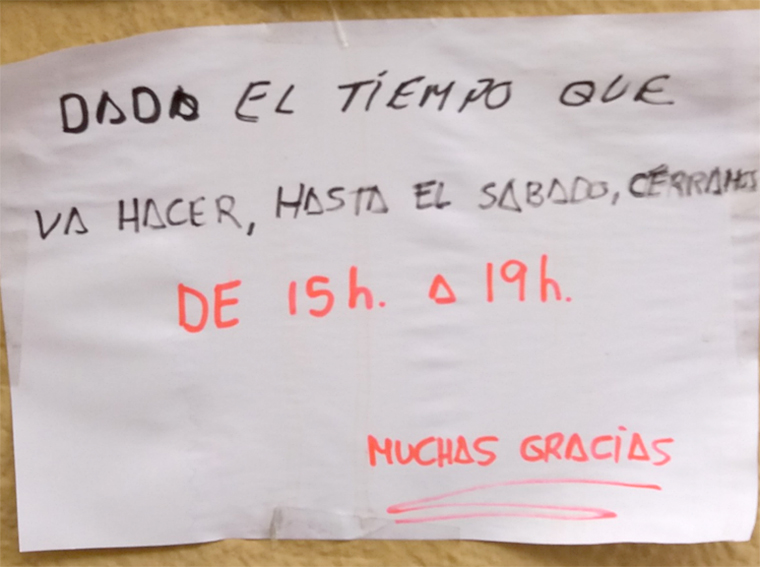 DADA EL TIEMPO QUE
VA HACER, HASTA EL SABADO, CERRAMOS
DE 15h. A 19h.
MUCHAS GRACIAS